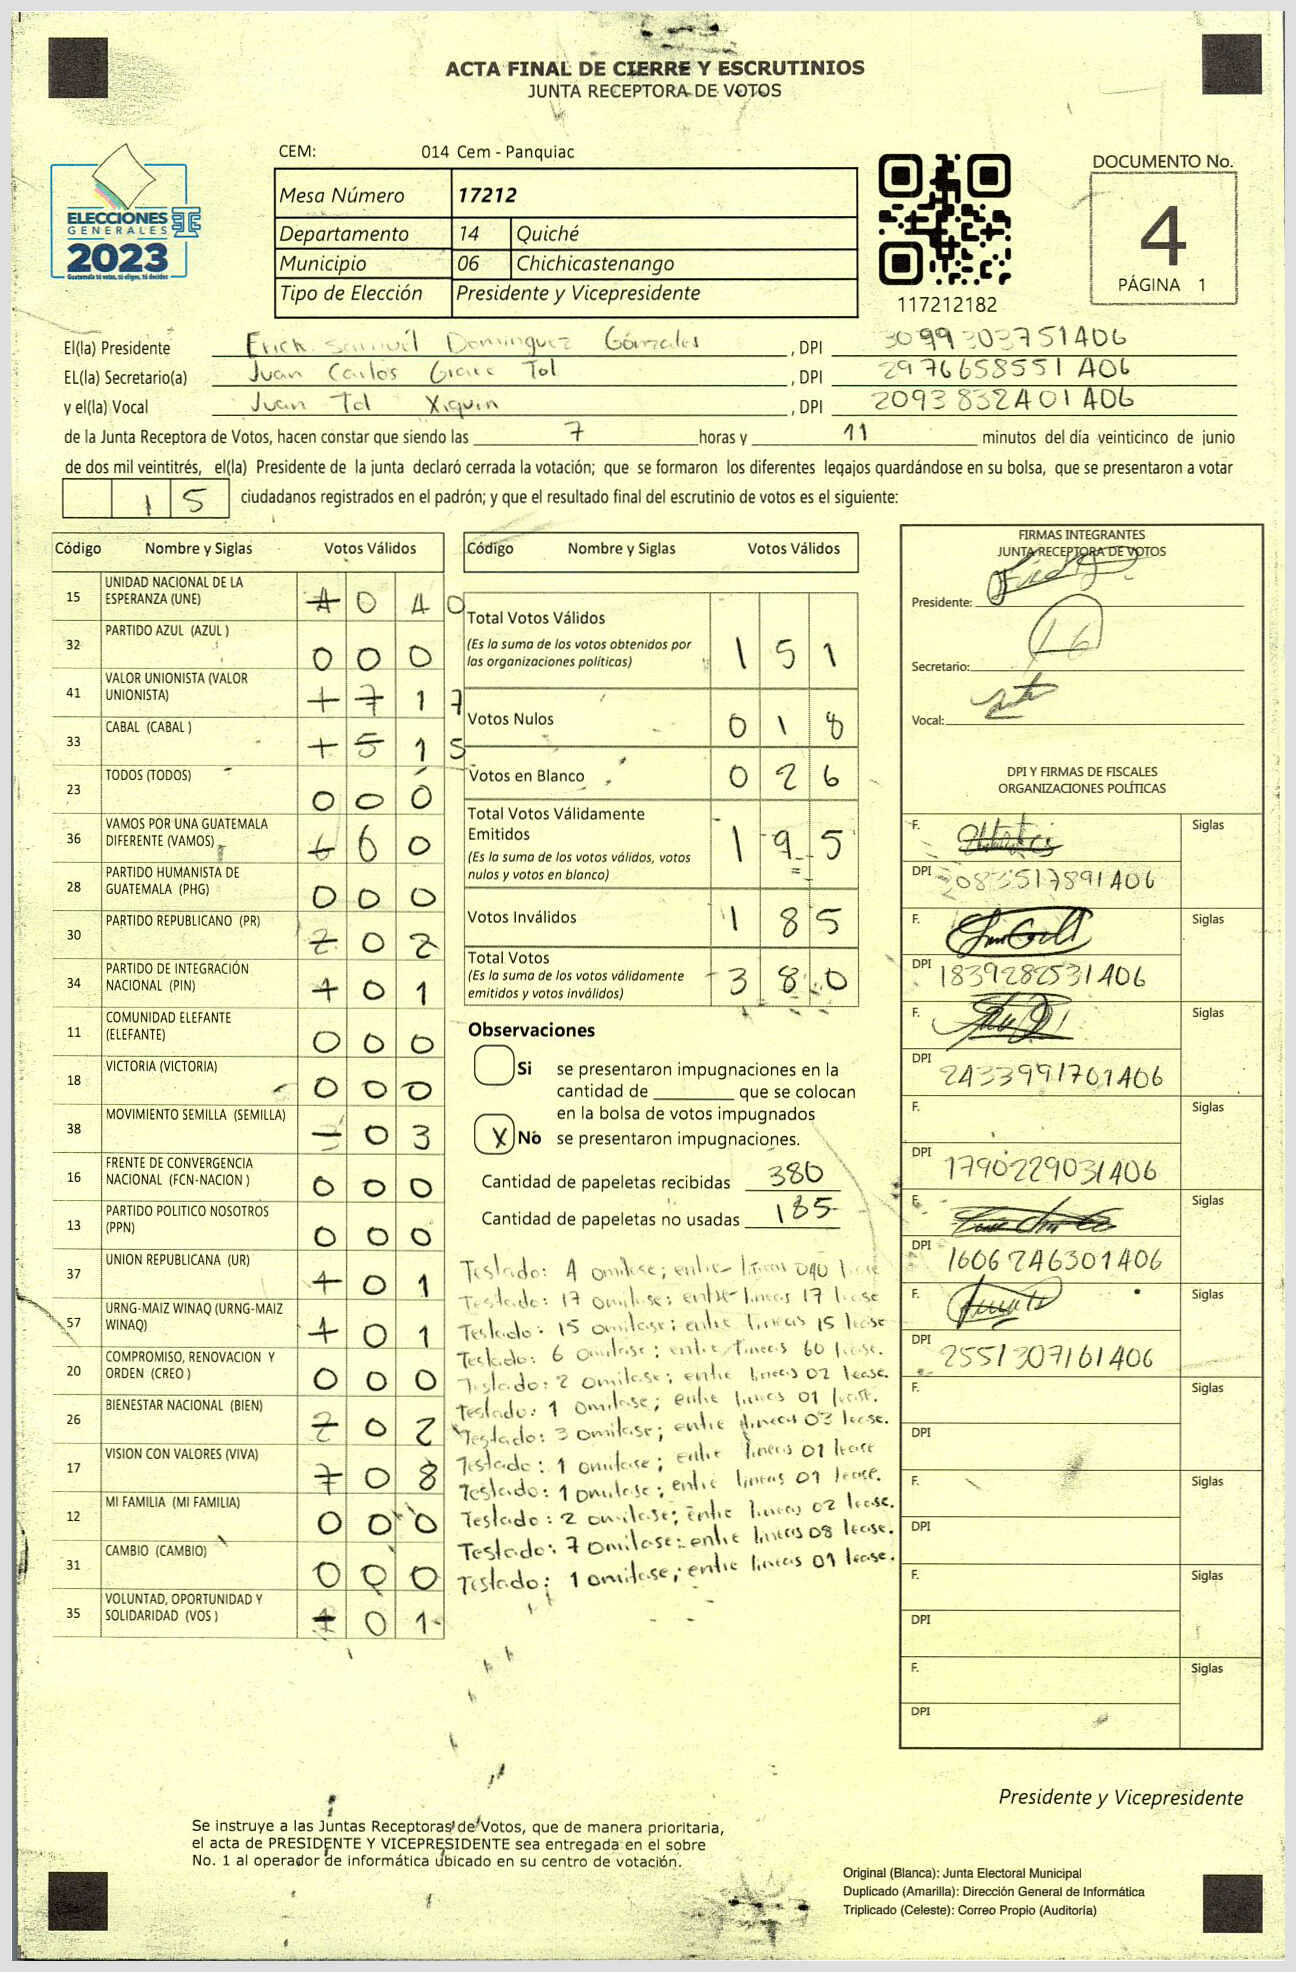 ACTA FINAL DE CIERRE Y ESCRUTINIOS
JUNTA RECEPTORA DE VOTOS
CEM: 014 Cem - Panquiac
Mesa Número 17212
Departamento 14 Quiché
Municipio 06 Chichicastenango
Tipo de Elección Presidente y Vicepresidente
ELECCIONES
GENERALES
2023
Guatemala tú votas, tú eliges, tú decides
117212182
DOCUMENTO No.
4
PÁGINA 1
El(la) Presidente Erick Samuél Dominguez Gónzales, DPI 3099303751406
EL(la) Secretario(a) Juan Carlos Tol, DPI 2976658551 A06
y el(la) Vocal Juan Tol Xiquin, DPI 2093832401406
de la Junta Receptora de Votos, hacen constar que siendo las 7 horas y 11 minutos del día veinticinco de junio
de dos mil veintitrés, el(la) Presidente de la junta declaró cerrada la votación; que se formaron los diferentes legajos quardándose en su bolsa, que se presentaron a votar
15 ciudadanos registrados en el padrón; y que el resultado final del escrutinio de votos es el siguiente:
Código Nombre y Siglas Votos Válidos
15 UNIDAD NACIONAL DE LA
ESPERANZA (UNE) 0 4 0
32 PARTIDO AZUL (AZUL ) 0 0 0
41 VALOR UNIONISTA (VALOR
UNIONISTA) 1 7 1 7
33 CABAL (CABAL ) 1 5 1 5
23 TODOS (TODOS) 0 0 0
36 VAMOS POR UNA GUATEMALA
DIFERENTE (VAMOS) 6 6 0
28 PARTIDO HUMANISTA DE
GUATEMALA (PHG) 0 0 0
30 PARTIDO REPUBLICANO (PR) 2 0 2
34 PARTIDO DE INTEGRACIÓN
NACIONAL (PIN) 1 0 1
11 COMUNIDAD ELEFANTE
(ELEFANTE) 0 0 0
18 VICTORIA (VICTORIA) 0 0 0
38 MOVIMIENTO SEMILLA (SEMILLA) 3 0 3
16 FRENTE DE CONVERGENCIA
NACIONAL (FCN-NACION ) 0 0 0
13 PARTIDO POLITICO NOSOTROS
(PPN) 0 0 0
37 UNION REPUBLICANA (UR) 1 0 1
57 URNG-MAIZ WINAQ (URNG-MAIZ
WINAQ) 1 0 1
20 COMPROMISO, RENOVACION Y
ORDEN (CREO ) 0 0 0
26 BIENESTAR NACIONAL (BIEN) 2 0 2
17 VISION CON VALORES (VIVA) 7 0 8
12 MI FAMILIA (MI FAMILIA) 0 0 0
31 CAMBIO (CAMBIO) 0 0 0
35 VOLUNTAD, OPORTUNIDAD Y
SOLIDARIDAD (VOS ) 1 0 1
Código Nombre y Siglas Votos Válidos
Total Votos Válidos
(Es la suma de los votos obtenidos por
las organizaciones políticas) 1 5 1
Votos Nulos 0 1 8
Votos en Blanco 0 2 6
Total Votos Válidamente
Emitidos
(Es la suma de los votos válidos, votos
nulos y votos en blanco) 1 9 5
Votos Inválidos 1 8 5
Total Votos
(Es la suma de los votos válidamente
emitidos y votos inválidos) 3 8 0
Observaciones
Si se presentaron impugnaciones en la
cantidad de ________ que se colocan
en la bolsa de votos impugnados
X No se presentaron impugnaciones.
Cantidad de papeletas recibidas 380
Cantidad de papeletas no usadas 185
Testado: 4 omitase; entre lineas 040 lease
Testado: 17 omitase; entre lineas 17 lease
Testado: 15 omitase; entre lineas 15 lease
Testado: 6 omitase; entre lineas 60 lease.
Testado: 2 omitase; entre lineas 02 lease.
Testado: 1 omitase; entre lineas 01 lease.
Testado: 3 omitase; entre lineas 03 lease.
Testado: 1 omitase; entre lineas 01 lease
Testado: 1 omitase; entre lineas 01 lease.
Testado: 2 omitase; entre lineas 02 lease.
Testado: 7 omitase; entre lineas 08 lease.
Testado: 1 omitase; entre lineas 01 lease.
FIRMAS INTEGRANTES
JUNTA RECEPTORA DE VOTOS
Presidente:
Secretario:
Vocal:
DPI Y FIRMAS DE FISCALES
ORGANIZACIONES POLÍTICAS
F. Siglas
DPI 2083517891406
F. Siglas
DPI 1839282531406
F. Siglas
DPI 2433991701406
F. Siglas
DPI 1790229031406
F. Siglas
DPI 1606246301406
F. Siglas
DPI 2551307161406
F. Siglas
DPI
F. Siglas
DPI
F. Siglas
DPI
F. Siglas
DPI
Presidente y Vicepresidente
Se instruye a las Juntas Receptoras de Votos, que de manera prioritaria,
el acta de PRESIDENTE Y VICEPRESIDENTE sea entregada en el sobre
No. 1 al operador de informática ubicado en su centro de votación.
Original (Blanca): Junta Electoral Municipal
Duplicado (Amarilla): Dirección General de Informática
Triplicado (Celeste): Correo Propio (Auditoría)